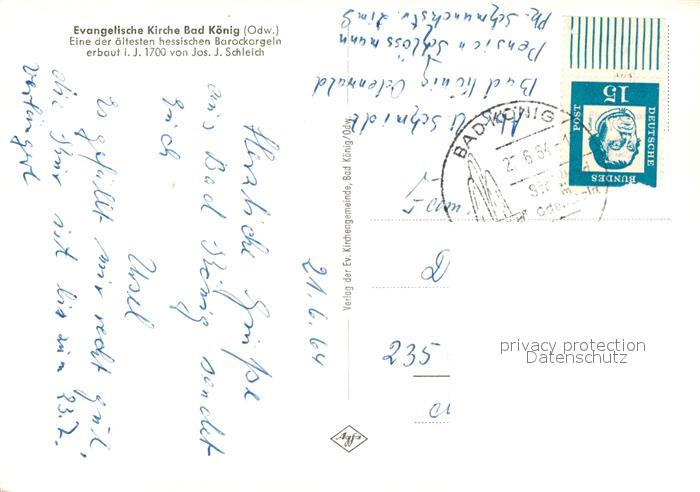 Evangelische Kirche Bad König (Odw.)
Eine der ältesten hessischen Barockorgeln
erbaut i. J. 1700 von Jos. J. Schleich
21.6.64
Herzliche Grüße
aus Bad König sendet
Euch
Ursel
Es gefällt mir recht gut,
die Kur ist bis zum 23.7.
verlängert
Verlag der Ev. Kirchengemeinde, Bad König/Odw.
Abs. U. Schmidt
Bad König Odenwald
Pension Schlossmann
15
DEUTSCHE
BUNDES
POST
BAD KÖNIG
6.64
235
Agfa
privacy protection
Datenschutz